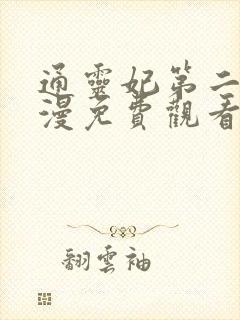 通靈妃第二
漫免費觀看
翻雲袖